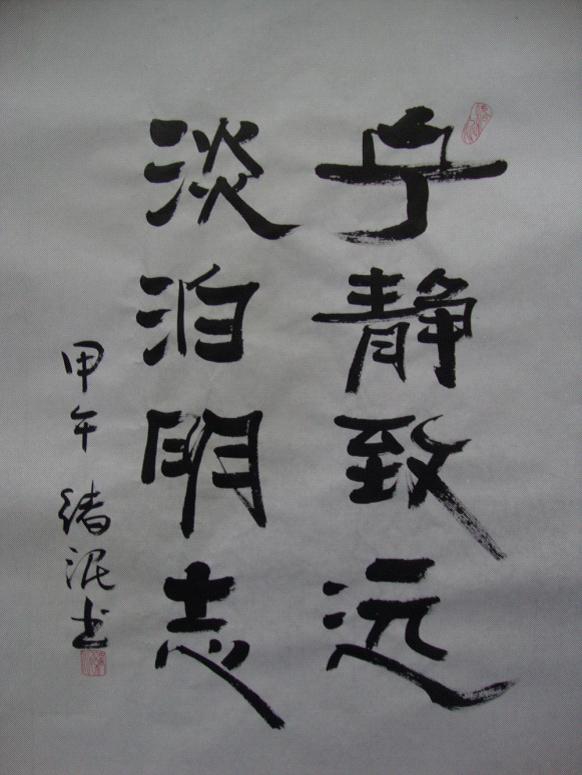 宁静致远
淡泊明志
甲午 绪泥书